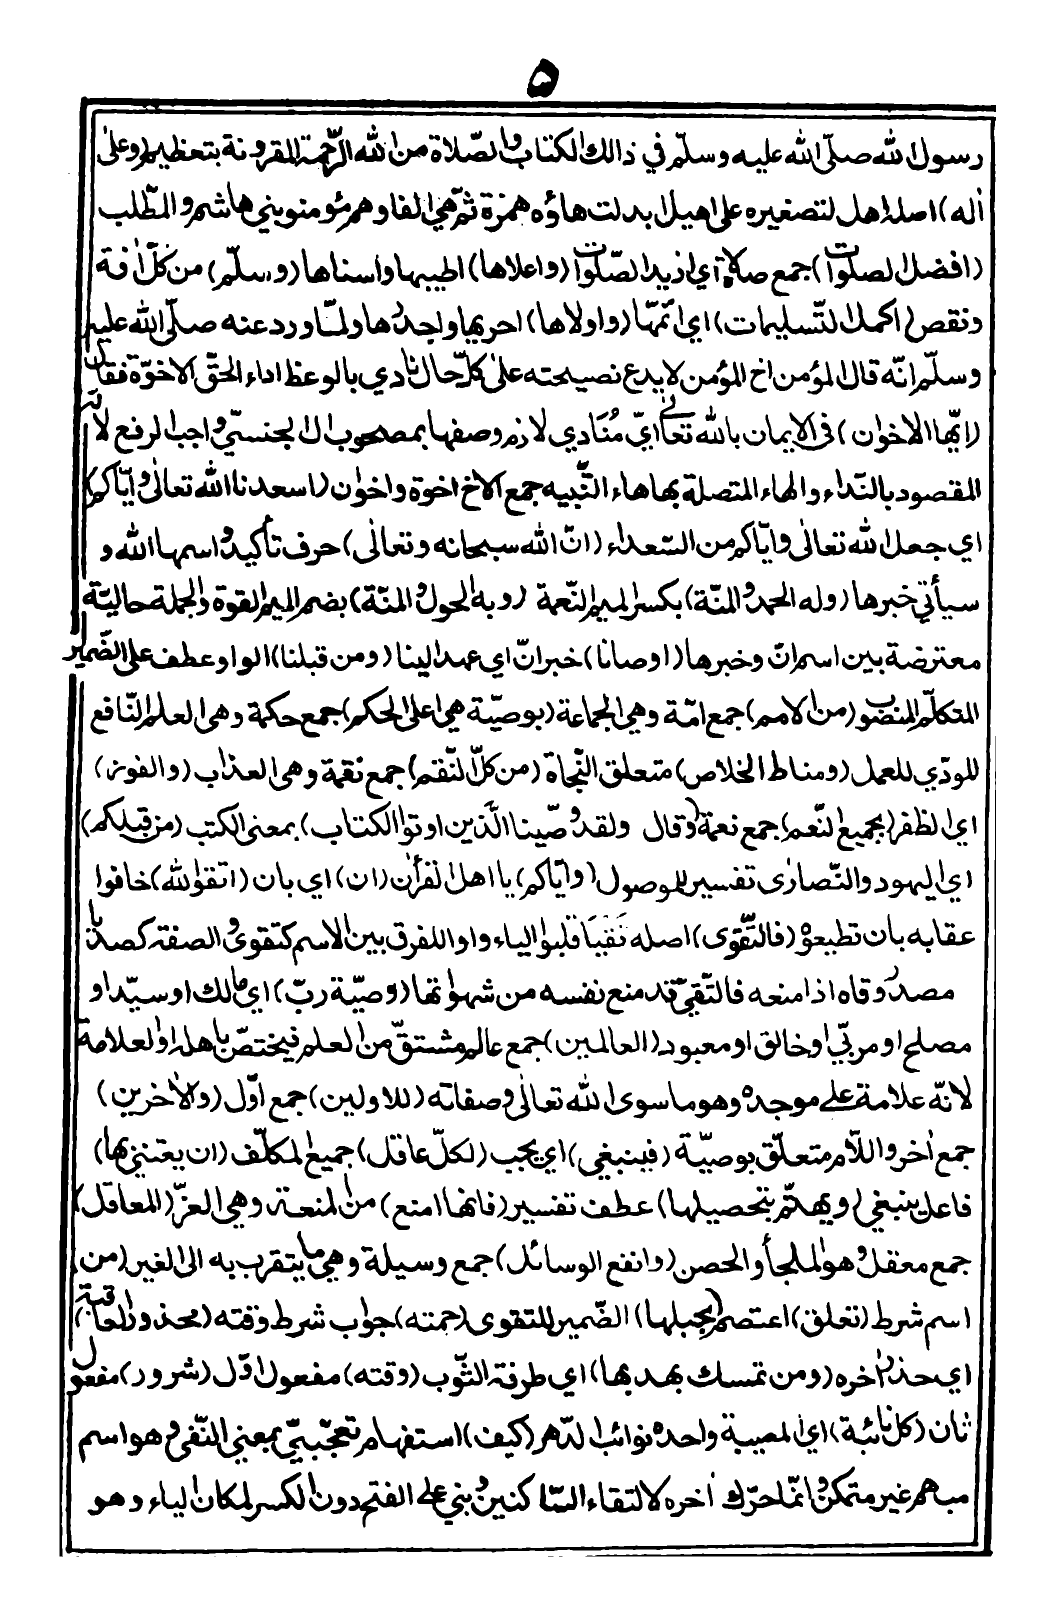 ٥
رسول الله صلّى الله عليه وسلّم في ذالك الكتاب والصّلاة من الله الرّحمة المقرونة بتعظيم (وعلى
اٰله) اصله اهل لتصغيره على اهيل ابدلت هاؤه همزة ثمّ هي الفا وهم مؤمنو بني هاشم والمطّلب
(افضل الصلوات) جمع صلاة اي ازيد الصّلوات (واعلاها) اطيبها واسناها (وسلّم) من كلّ اٰفة
ونقص (اكمل التّسليمات) اي اتمّها (واولاها) احريها واجدها ولمّا ورد عنه صلّى الله عليه
وسلّم انّه قال المؤمن اخ المؤمن لا يدع نصيحته على كلّ حال نادي بالوعظ اداء الحقّ الاخوّة فقال
(ايّها الاخوان) فى الايمان بالله تعالى ايّ مُنَادي لازم وصفها بمصحوب ال الجنسيّ واجب الرفع لانّه
المقصود بالنّداء والهاء المتصلة بها هاء التّنبيه جمع الاخ اخوة واخوان (اسعدنا الله تعالى وايّاكم)
اي جعل الله تعالى وايّاكم من السّعداء (انّ الله سبحانه وتعالى) حرف تأكيد واسمها الله و
سيأتي خبرها (وله الحمد والمنّة) بكسر الميم النّعمة (وبه الحول والمنّة) بضم الميم القوة والجملة حاليّة
معترضة بين اسم انّ وخبرها (اوصانا) خبر انّ اي عهد الينا (ومن قبلنا) الواو عطف على الضّمير
المتكلّم المنصوب (من الامم) جمع امّة وهي الجماعة (بوصيّة هي اعلى الحكم) جمع حكمة وهى العلم النّافع
المودّي للعمل (ومناط الخلاص) متعلق النّجاة (من كلّ النّقم) جمع نقمة وهى العذاب (والفوز)
اي الظفر (بجميع النّعم) جمع نعمة (وقال ولقد وصّينا الّذين اوتوا الكتاب) بمعنى الكتب (من قبلكم)
اي اليهود والنّصارٰى تفسير للموصول (وايّاكم) يا اهل القرأن (ان) اي بان (اتقوا الله) خافوا
عقابه بان تطيعوْ (فالتّقوى) اصله تَقْيَا قلبوا الياء واوا للفرق بين الاسم كتقوى والصفة كصديا
مصدر وقاه اذا منعه فالتّقيّ قد منع نفسه من شهواتها (وصيّة ربّ) اي مالك او سيّد او
مصلح او مربّي او خالق او معبود (العالمين) جمع عالم مشتقّ من العلم فيختصّ باهله او العلامة
لانّه علامة على موجده وهو ما سوى الله تعالى وصفاته (للاولين) جمع اوّل (والاٰخرين)
جمع اٰخر واللاّم متعلّق بوصيّة (فينبغي) اي يجب (لكلّ عاقل) جميع المكلّف (ان يعتني بها)
فاعل ينبغي (ويهتمّ بتحصيلها) عطف تفسير (فانّها امنع) من المنعة وهي العزّ (المعاقل)
جمع معقل وهو الملجأ والحصن (وانفع الوسائل) جمع وسيلة وهي ما يتقرب به الى الغير (من)
اسم شرط (تعلق) اعتصم (بحبلها) الضّمير للتقوى (حمته) جواب شرط وقته (محذور العاقبة)
اي حذر اٰخره (ومن تمسك بهدبها) اي طرفة الثّوب (وقته) مفعول اوّل (شرور) مفعول
ثان (كل نائبة) اي المصيبة واحدة نوائب الدّهر (كيف) استفهام تعجّبيّ بمعنى النّفى وهو اسم
مبهم غير متمكن وانّما حرّك اٰخره لالتقاء السّاكنين وبني على الفتح دون الكسر لمكان الياء وهو